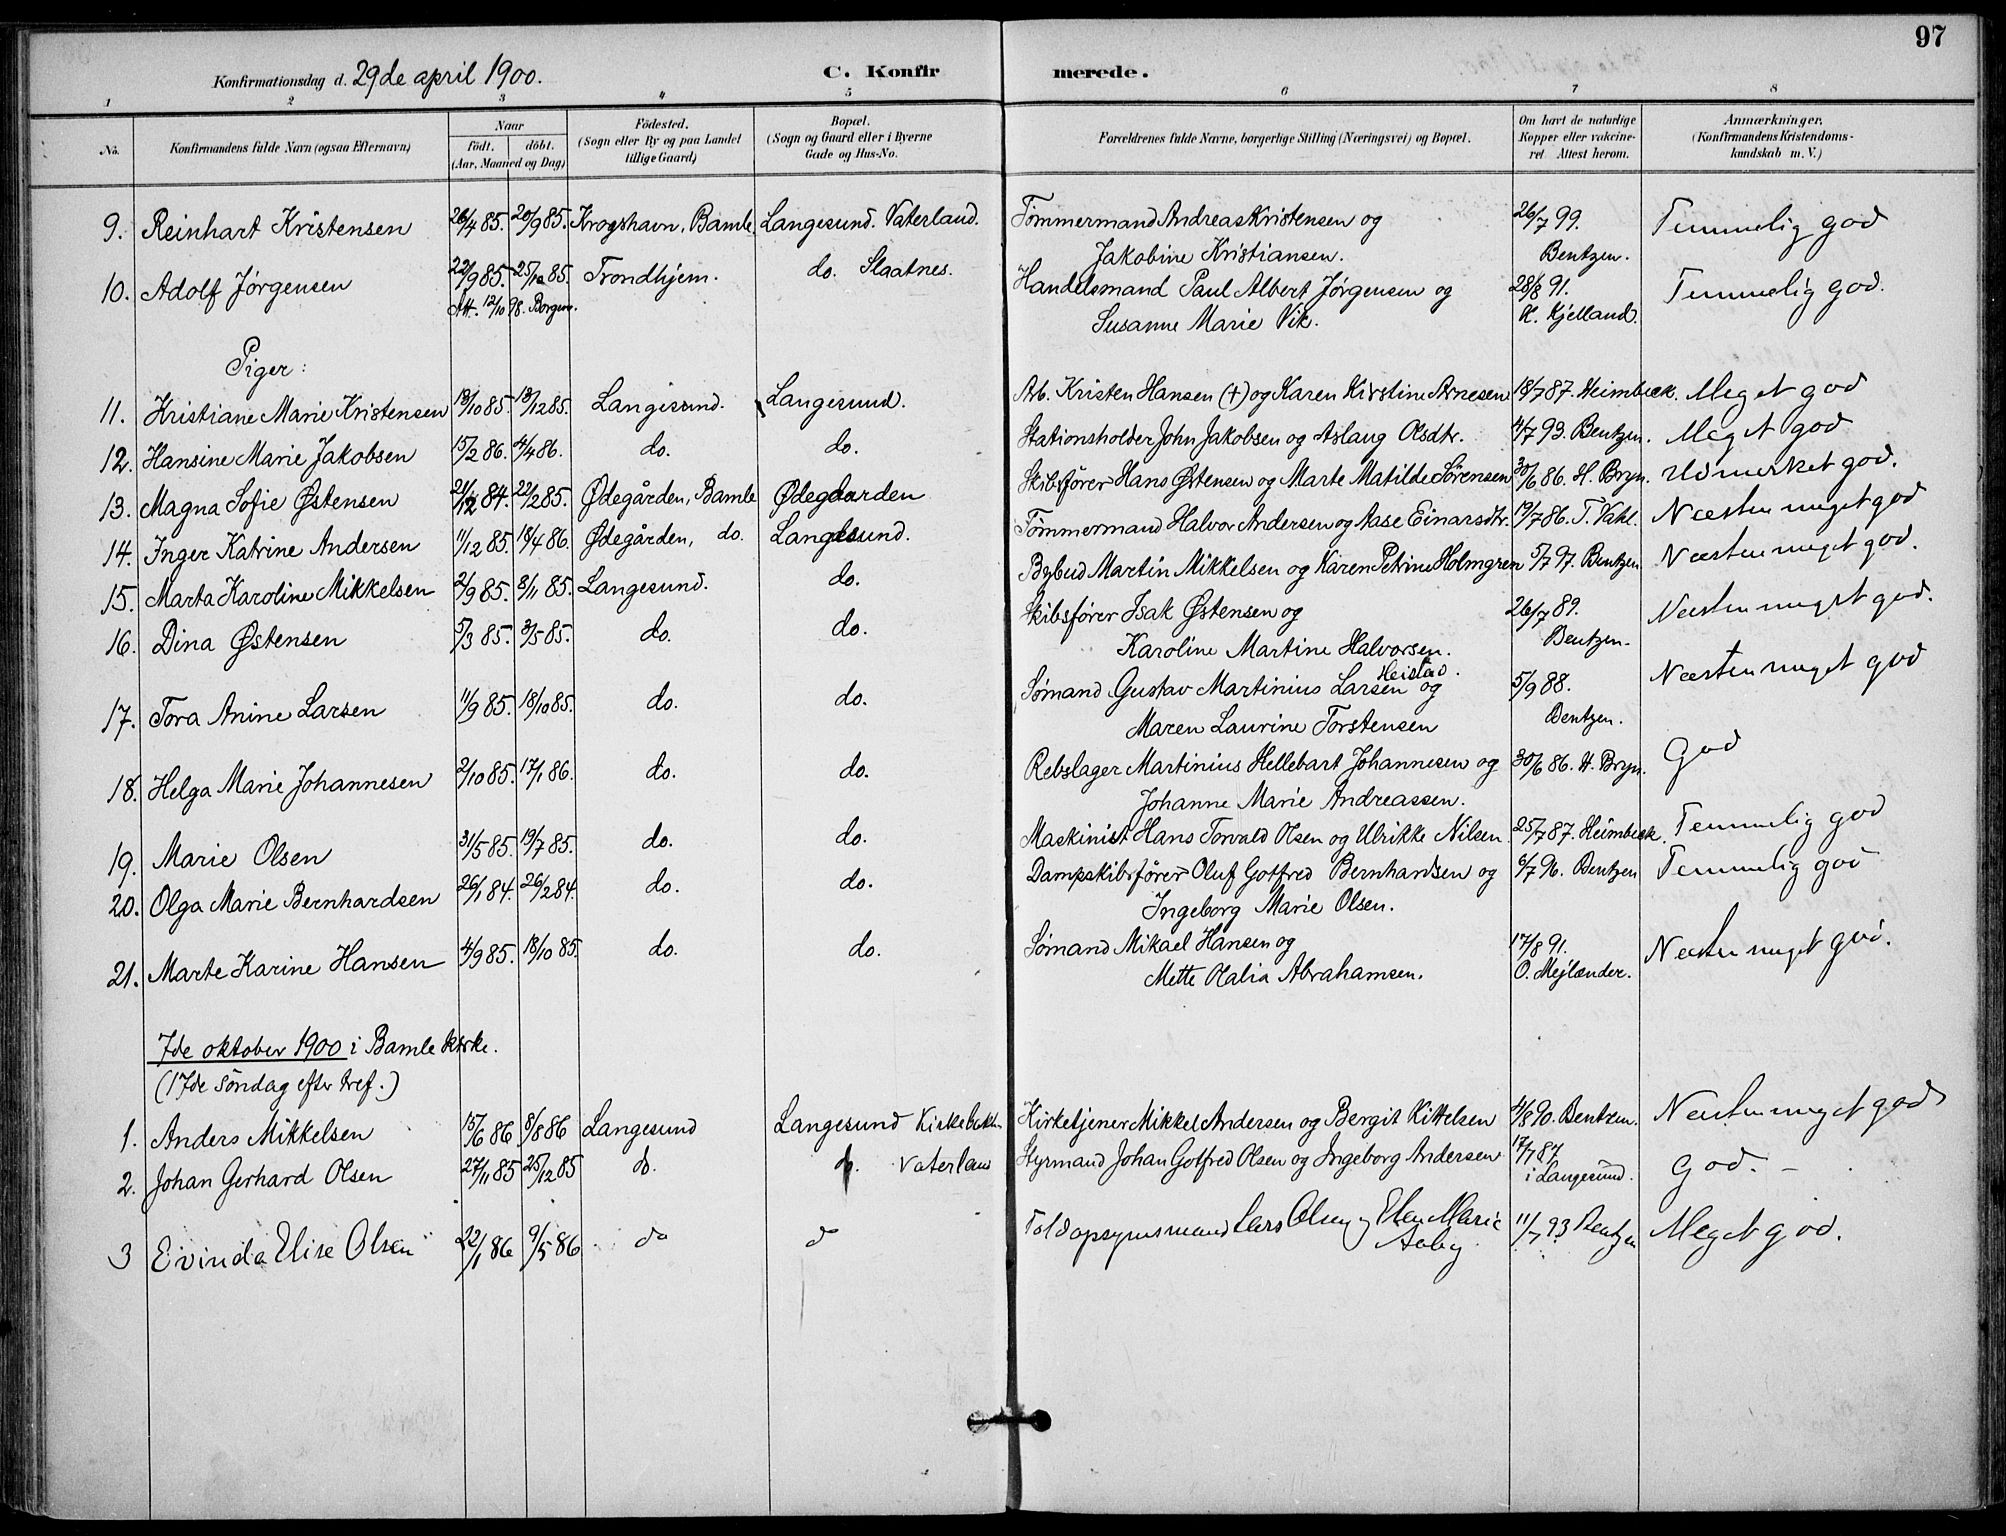 97
Konfirmationsdag d. 29de april 1900. C. Konfirmerede.
1 2 3 4 5 6 7 8
No. Konfirmandens fulde Navn (ogsaa Efternavn) Naar födt. döbt. (Aar, Maaned og Dag) Födested. (Sogn eller By og paa Landet tillige Gaard) Bopæl. (Sogn og Gaard eller i Byerne Gade og Hus-No. Forældrenes fulde Navne, borgerlige Stilling (Næringsvei) og Bopæl. Om havt de naturlige Kopper eller vakcineret Attest herom. Anmærkninger. (Konfirmandens Kristendomskundskab m. V.)
9. Reinhart Kristensen 26/4 85. 20/9 85. Krogshavn, Bamle. Langesund. Vaterland. Tømmermand Andreas Kristensen og 26/7 99. Temmelig god
Jakobine Kristiansen. Bentzen.
10. Adolf Jørgensen 22/9 85. 25/12 85. Trondhjem. do. Slaatnes. Handelsmand Paul Albert Jørgensen og 28/8 91. Temmelig god.
Att. 12/10 98. Borgen. Susanne Marie Vik. K. Kjelland.
Piger:
11. Kristiane Marie Kristensen 13/10 85. 13/12 85. Langesund. Langesund. Arb. Kristen Hansen (+) og Karen Kirstine Arnesen 18/7 87. Heimbeck. Meget god
12. Hansine Marie Jakobsen 15/2 86. 4/4 86. do. do. Stationsholder John Jakobsen og Aslaug Olsdtr. 4/7 93. Bentzen. Meget god
13. Magna Sofie Østensen 21/12 84. 22/2 85. Ødegården, Bamle Ødegaarden Skibsfører Hans Østensen og Marte Matilde Sørensen 30/6 86. H. Bryn. Udmerket god.
14. Inger Katrine Andersen 11/12 85. 18/4 86. Ødegården, do. Langesund. Tømmermand Halvor Andersen og Aase Einarsdtr. 19/7 86. T. Vahl. Næsten meget god
15. Marta Karoline Mikkelsen 2/9 85. 8/11 85. Langesund. do. Bybud Martin Mikkelsen og Karen Petrine Holmgren 5/7 97. Bentzen Næsten meget god.
16. Dina Østensen 5/3 85. 3/5 85. do. do. Skibsfører Isak Østensen og 26/7 89. Næsten meget god.
Karoline Martine Halvorsen. Bentzen.
Heistad.
17. Tora Anine Larsen 11/9 85. 18/10 85. do. do. Sømand Gustav Martinius Larsen og 5/9 88. Næsten meget god
Maren Laurine Torstensen Bentzen.
18. Helga Marie Johannesen 2/10 85. 17/1 86. do. do. Rebslager Martinius Hellebart Johannesen og 30/6 86. H. Bryn. God
Johanne Marie Andreassen.
19. Marie Olsen 31/5 85. 19/7 85. do. do. Maskinist Hans Torvald Olsen og Ulrikke Nilsen 25/7 87. Heimbeck. Temmelig god
20. Olga Marie Bernhardsen 26/1 84. 26/2 84. do. do. Dampskibsfører Oluf Gotfred Bernhardsen og 6/7 96. Bentzen Temmelig god
Ingeborg Marie Olsen.
21. Marte Karine Hansen 4/9 85. 18/10 85. do. do. Sømand Mikael Hansen og 17/8 91. Næsten meget god.
Mette Olalia Abrahamsen. O. Mejlænder.
7de oktober 1900 i Bamle kirke.
(17de søndag efter tref.)
1. Anders Mikkelsen 15/6 86 8/8 86 Langesund Langesund Kirkebakken Kirketjener Mikkel Andersen og Bergit Kittelsen 4/8 90. Bentzen. Næsten meget god
2. Johan Gerhard Olsen 27/11 85 25/12 85 do. do. Vaterland Styrmand Johan Gotfred Olsen og Ingeborg Andersen 17/7 87 God. –
i Langesund.
3 Evinda Elise Olsen 22/1 86 9/5 86 do do Toldopsynsmand Lars Olsen og Elen Marie 11/7 93 Bentzen Meget god.
Aaby